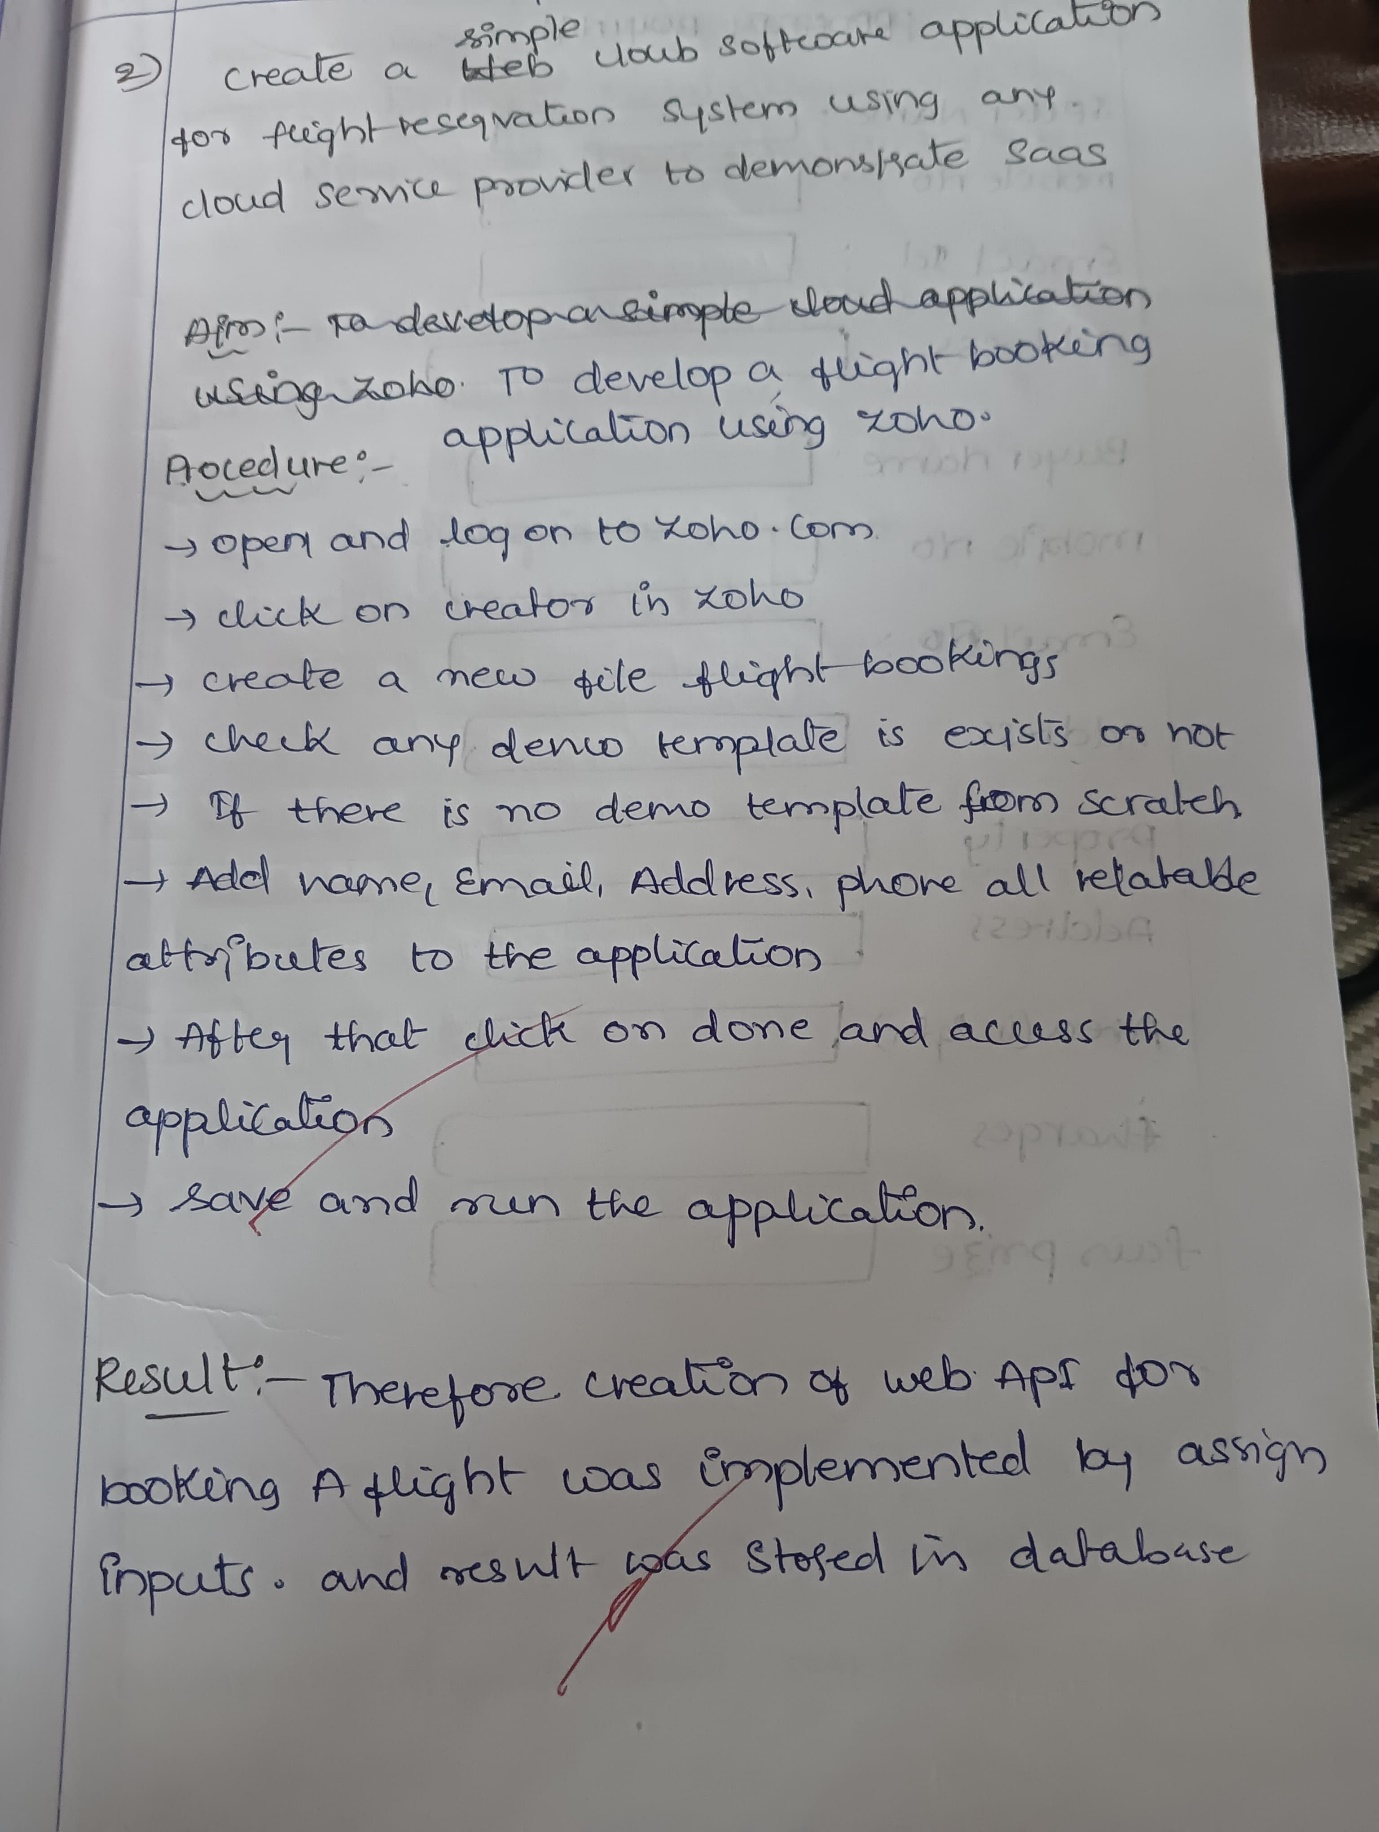 2) Create a simple cloub software application
for flight reseqvation system using any.
cloud service provider to demonstrate Saas
Aim:- To develop a simple cloud application
using zoho. To develop a flight booking
application using zoho.
Procedure:-
→ open and log on to zoho.com
→ click on creator in zoho
→ create a new file flight bookings
→ check any demo template is exists or not
→ If there is no demo template from scratch
→ Add name, Email, Address, phone all relatable
attributes to the application
→ After that click on done and access the
application
→ save and run the application.
Result:- Therefore creation of web API for
booking A flight was implemented by assign
inputs. and result was stored in database